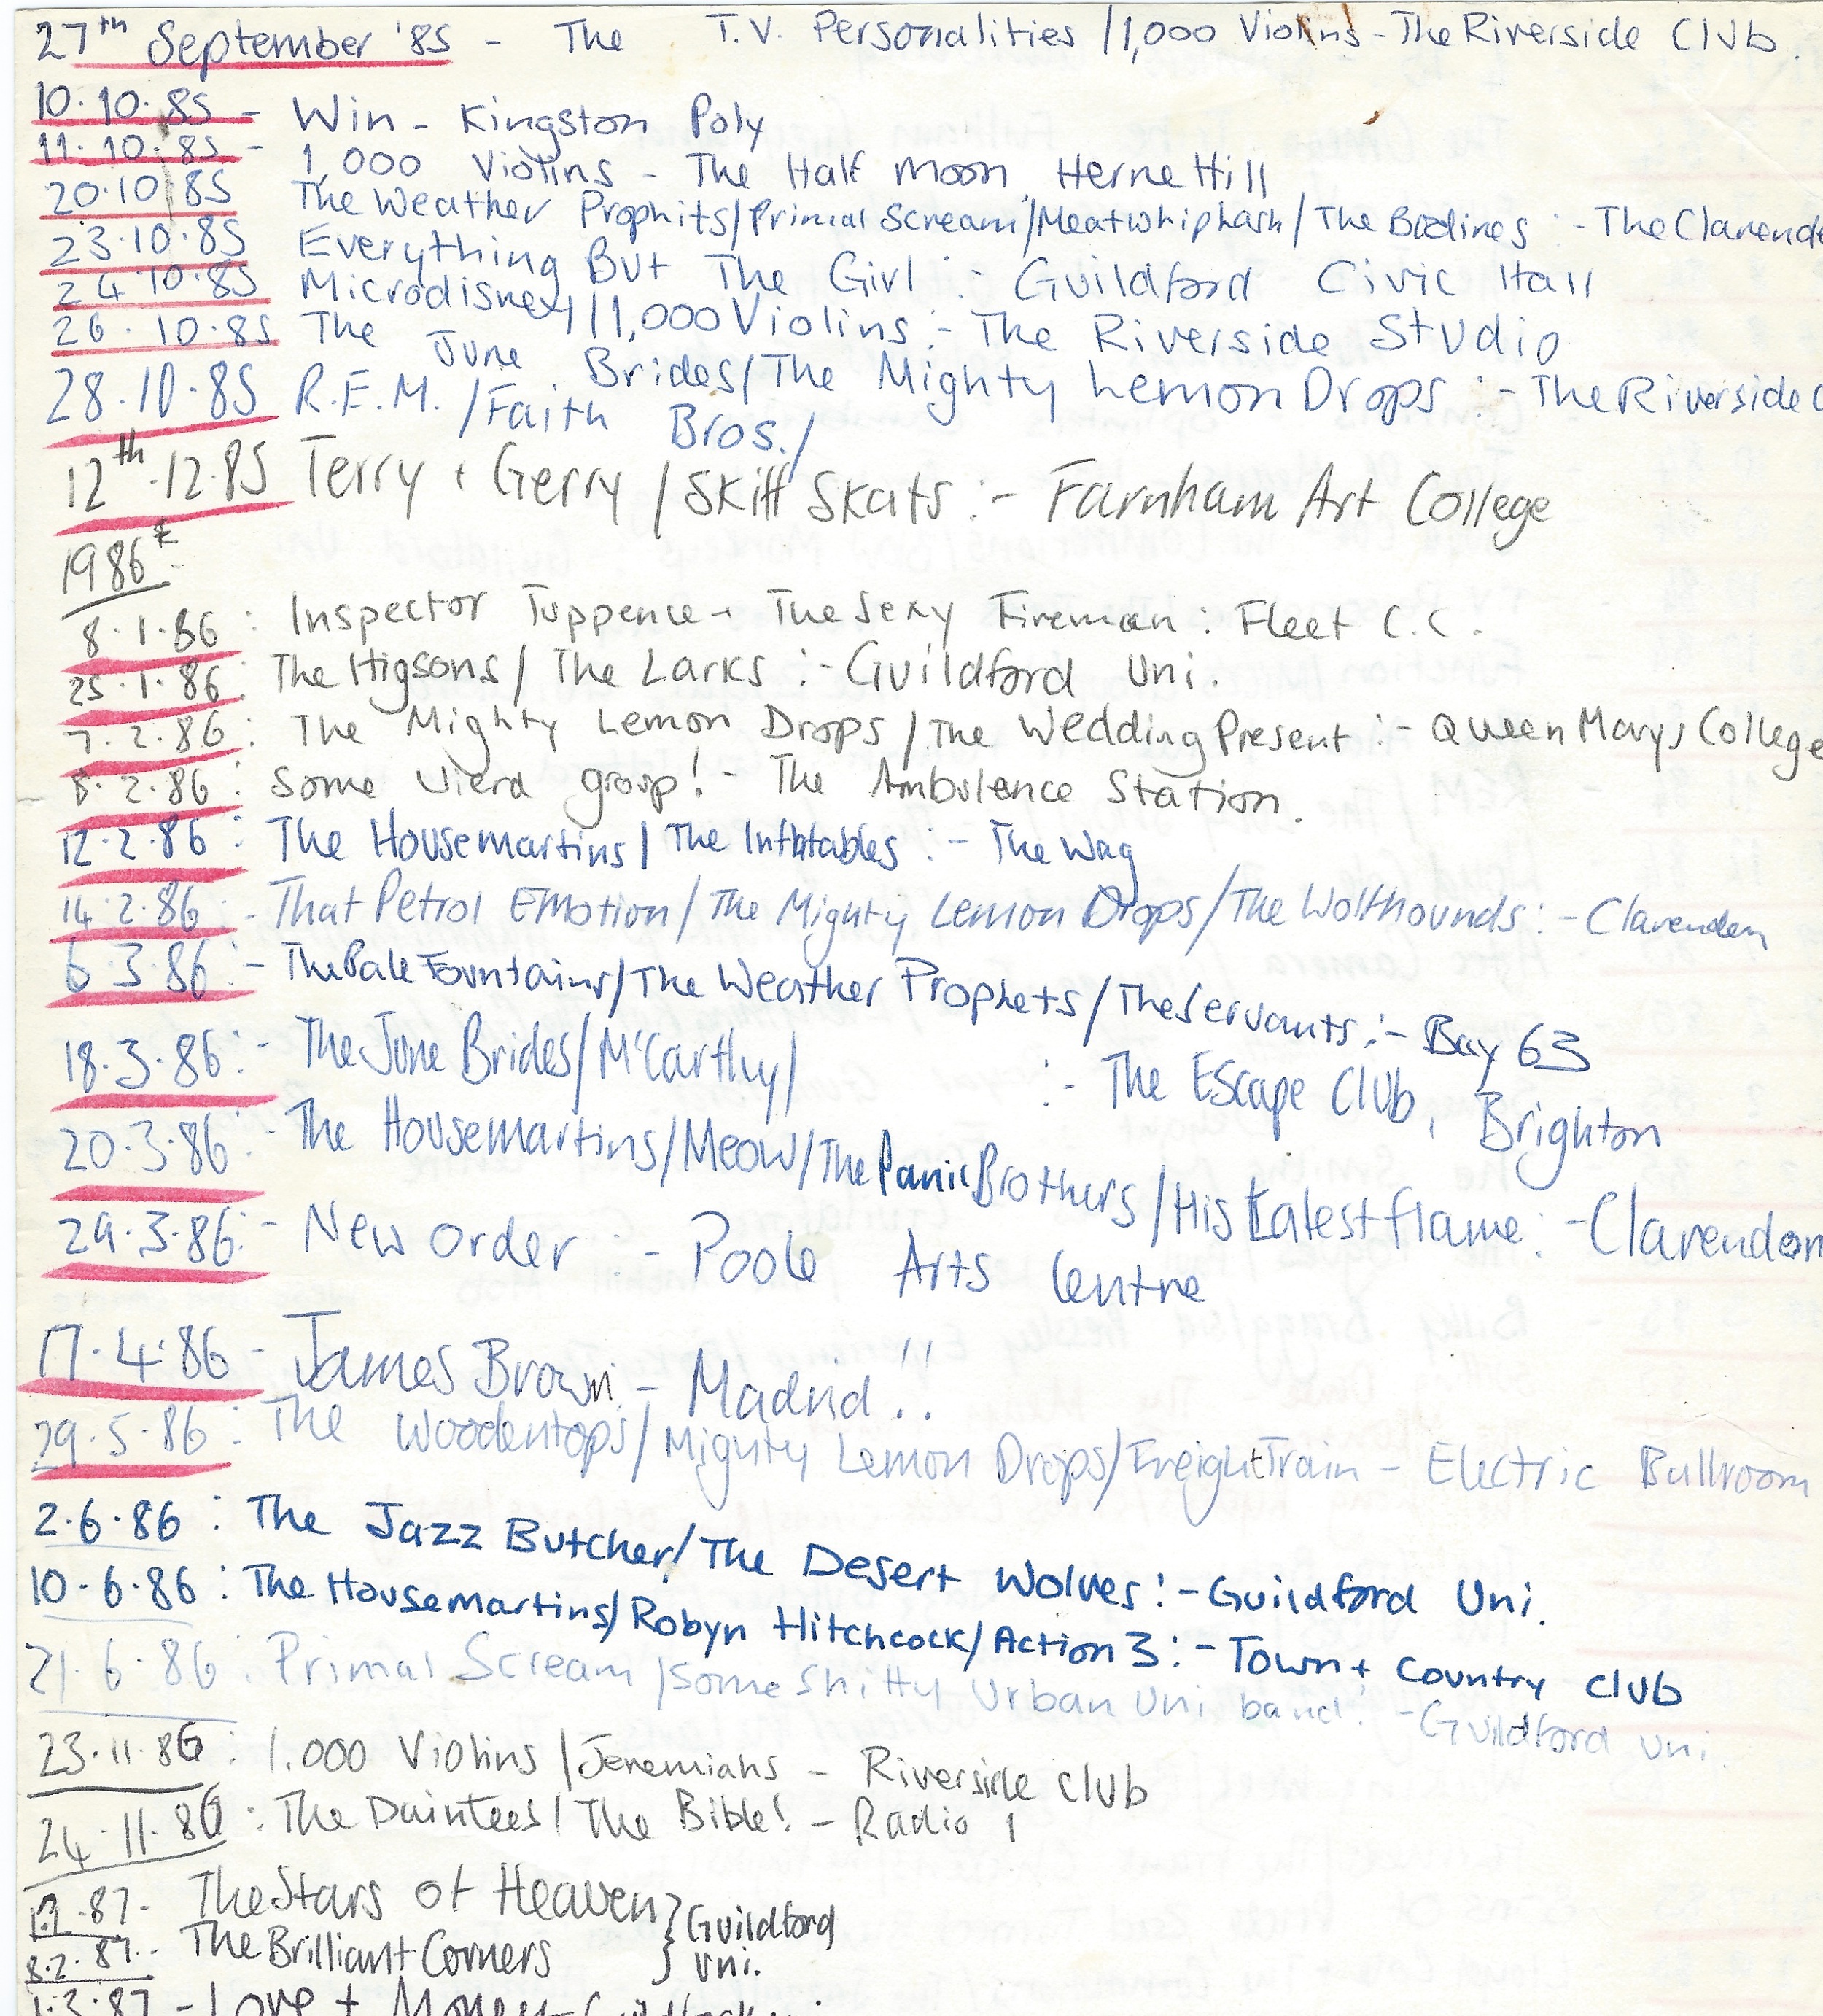 27th September '85 - The T.V. Personalities /1,000 Violins - The Riverside Club.
10.10.85 - Win - Kingston Poly
11.10.85 - 1,000 Violins - The Half Moon, Herne Hill
20.10.85 The Weather Prophits/Primal Scream/Meatwhiplash/The Bodines :- The Clarende
23.10.85 Everything But The Girl :- Guildford Civic Hall
24.10.85 Microdisney/1,000 Violins :- The Riverside Studio
26.10.85 The June Brides/The Mighty Lemon Drops :- The Riverside C
28.10.85 R.E.M. /Faith Bros./
12th.12.85 Terry + Gerry /Skiff Skats :- Farnham Art College
1986*
8.1.86 : Inspector Tuppence + The Sexy Fireman : Fleet C.C.
25.1.86 : The Higsons/ The Larks :- Guildford Uni.
7.2.86 : The Mighty Lemon Drops /The Wedding Present :- Queen Marys College
8.2.86 : Some group! - The Ambulence Station.
12.2.86 : The Housemartins/ The Inflatables :- The Wag
14.2.86 :- That Petrol Emotion/The Mighty Lemon Drops/The Wolfhounds :- Clarenden
6.3.86 :- The Pale Fountains/The Weather Prophets/The Servants :- Bay 63
18.3.86 :- The June Brides/McCarthy/ :- The Escape Club, Brighton
20.3.86 :- The Housemartins/Meow/The Panic Brothers/His Latest flame :- Clarendon
29.3.86 :- New Order :- Poole Arts Centre
17.4.86 - James Brown - Madrid!!
29.5.86 : The Woodentops/Mighty Lemon Drops/Freight Train - Electric Ballroom
2.6.86 : The Jazz Butcher/The Desert Wolves :- Guildford Uni.
10.6.86 : The Housemartins/Robyn Hitchcock/Action 3 :- Town + Country Club
21.6.86 : Primal Scream /Some Shitty Urban Uni band :- Guildford Uni.
23.11.86 : 1,000 Violins /Jeremiahs - Riverside Club
24.11.86 : The Daintees/ The Bible! - Radio 1
.87. The Stars of Heaven } Guildford
8.2.87. The Brilliant Corners } Uni.
1.3.87 - Love + Money